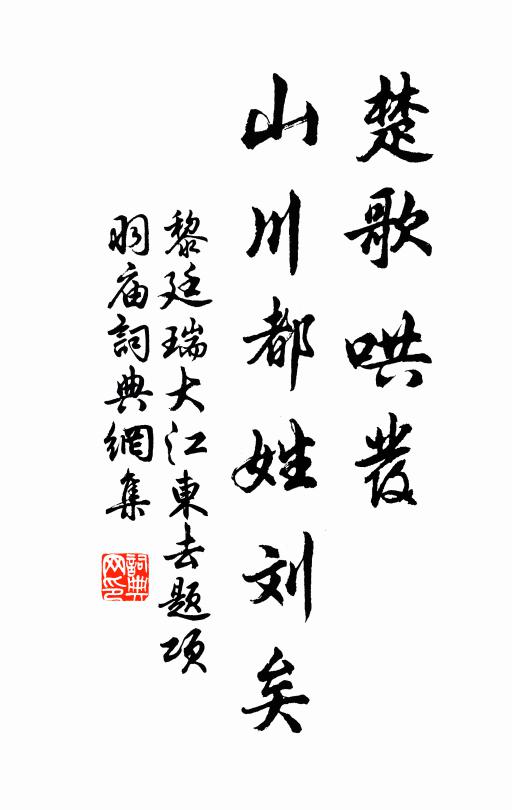 楚歌哄發
山川都姓刘矣
黎廷瑞大江東去題項
羽庙詞典網集
詞典网印